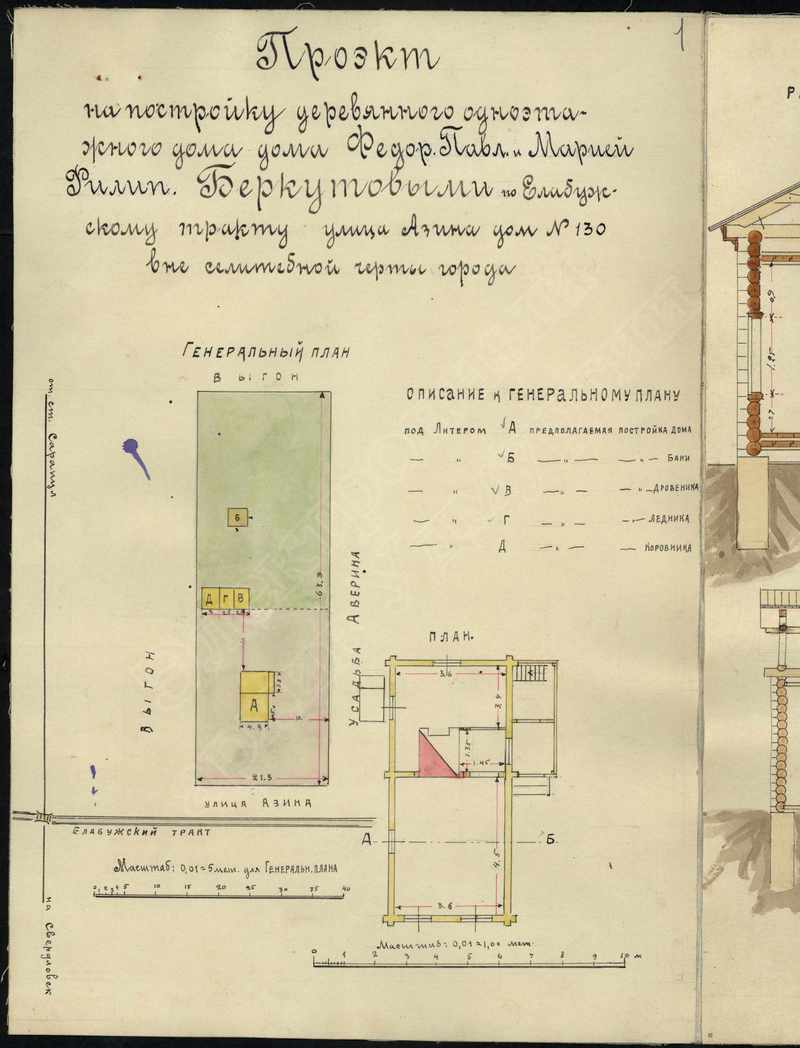 1
Проэкт
на постройку деревянного одноэта-
жного дома дома Федор. Павл. и Марией
Филип. Беркутовыми по Елабуж-
скому тракту улица Азина дом № 130
вне селитебной черты города
Генеральный план
Выгон
Описание к генеральному плану
под Литером А предполагаемая постройка дома
— „ Б — „ — — „ — Бани
— „ В — „ — — „ — Дровеника
— „ Г — „ — — „ — Ледника
— „ Д — „ — — Коровника
от ст. Сарапул
Б
Д Г В
63.3
А
4.3
21.3
Выгон
Усадьба Аверина
улица Азина
Елабужский тракт
на Свердловск
Масштаб: 0,01=5 мет. для Генеральн. плана
0 1 2 3 4 5 10 15 20 25 30 35 40
План.
3.6
3.4
1.35
1.45
А Б
4.5
3.6
Масштаб: 0,01=1,00 мет.
0 1 2 3 4 5 6 7 8 9 10 м
Р
1.25